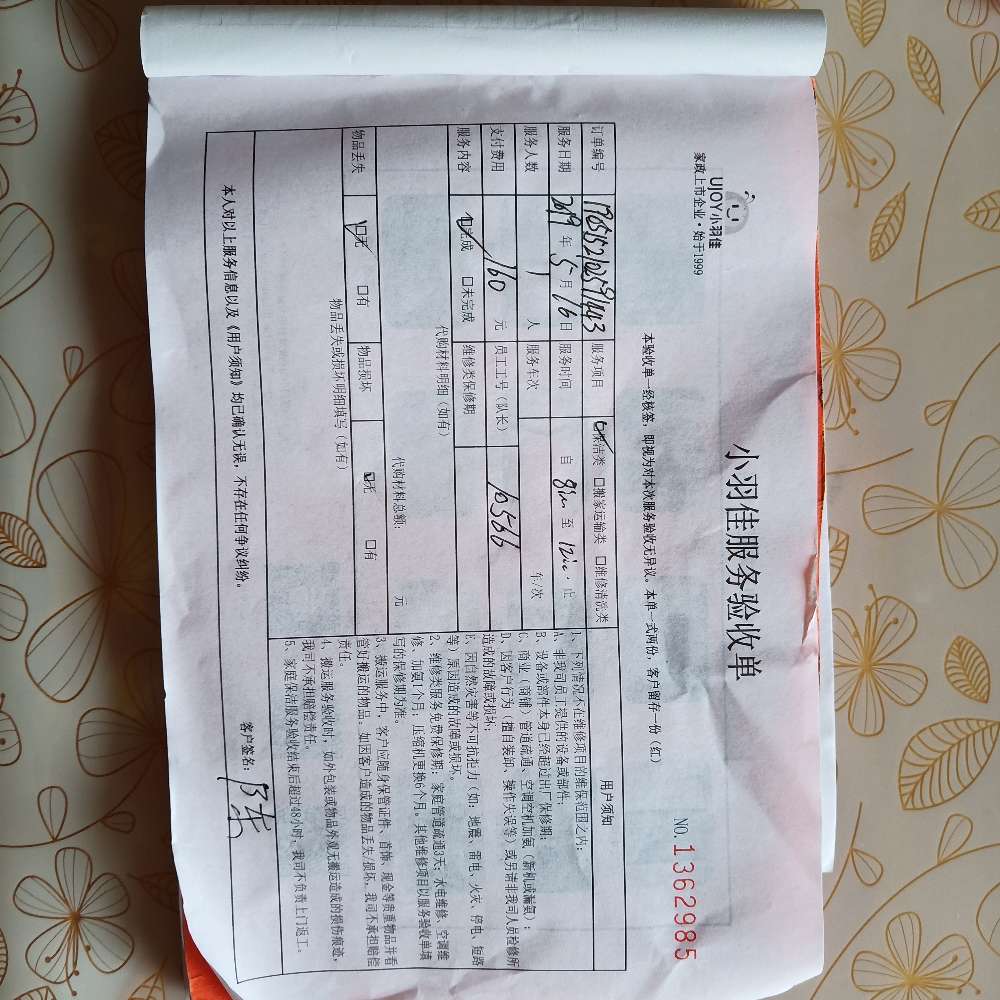 UJOY小羽佳
家政上市企业·始于1999
小羽佳服务验收单
NO.1362985
本验收单一经核签，即视为对本次服务验收无异议。本单一式两份，客户留存一份（红）
订单编号 服务项目 保洁类 □搬家运输类 □维修清洗类
服务日期 2019年5月16日 服务时间 自 至 止
服务人数 1人 服务车次 车/次
支付费用 160元 员工工号（队长） 10566
服务内容 ☑完成 □未完成 维修类保修期
代购材料明细（如有）
代购材料总额： 元
物品丢失 ☑无 □有 物品损坏 ☑无 □有
物品丢失或损坏明细填写（如有）
用户须知
1、下列情况不在维修项目的维保范围之内：
A、非我司员工提供的设备或部件；
B、设备或部件本身已经超过出厂保修期；
C、商业（商铺）管道疏通、空调空机加氨（新机或漏氨）；
D、因客户行为（擅自装卸、操作失误等）或另请非我司人员检修所
造成的故障或损坏；
E、因自然灾害等不可抗拒力（如：地震、雷电、火灾、停电、短路
等）原因造成的故障或损坏。
2、维修类服务免费保修期：家庭管道疏通3天；水电维修、空调维
修、加氨1个月；压缩机更换6个月。其他维修项目以服务验收单填
写的保修期为准。
3、搬运服务中，客户应随身保管证件、首饰、现金等贵重物品并看
管好搬运的物品，如因客户造成的物品丢失/损坏，我司不承担赔偿
责任。
4、搬运服务验收时，如外包装或物品外观无搬运造成的损伤痕迹，
我司不承担赔偿责任。
5、家庭保洁服务验收结束后超过48小时，我司不负责上门返工。
本人对以上服务信息以及《用户须知》均已确认无误，不存在任何争议纠纷。
客户签名：